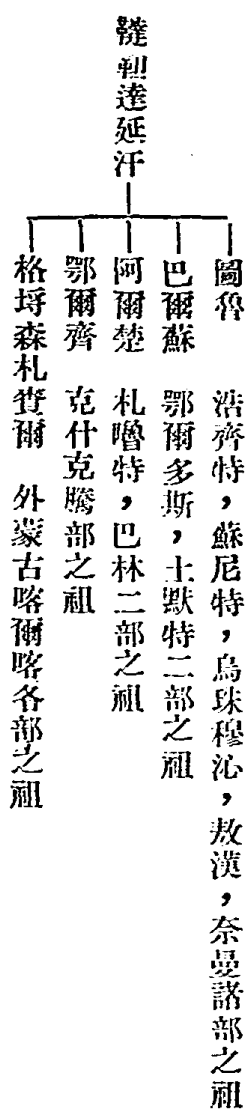 韃靼達延汗
圖魯　浩齊特，蘇尼特，烏珠穆沁，敖漢，奈曼諸部之祖
巴爾蘇　鄂爾多斯，土默特二部之祖
阿爾楚　札嚕特，巴林二部之祖
鄂爾齊　克什克騰部之祖
格埒森札賚爾　外蒙古喀爾喀各部之祖